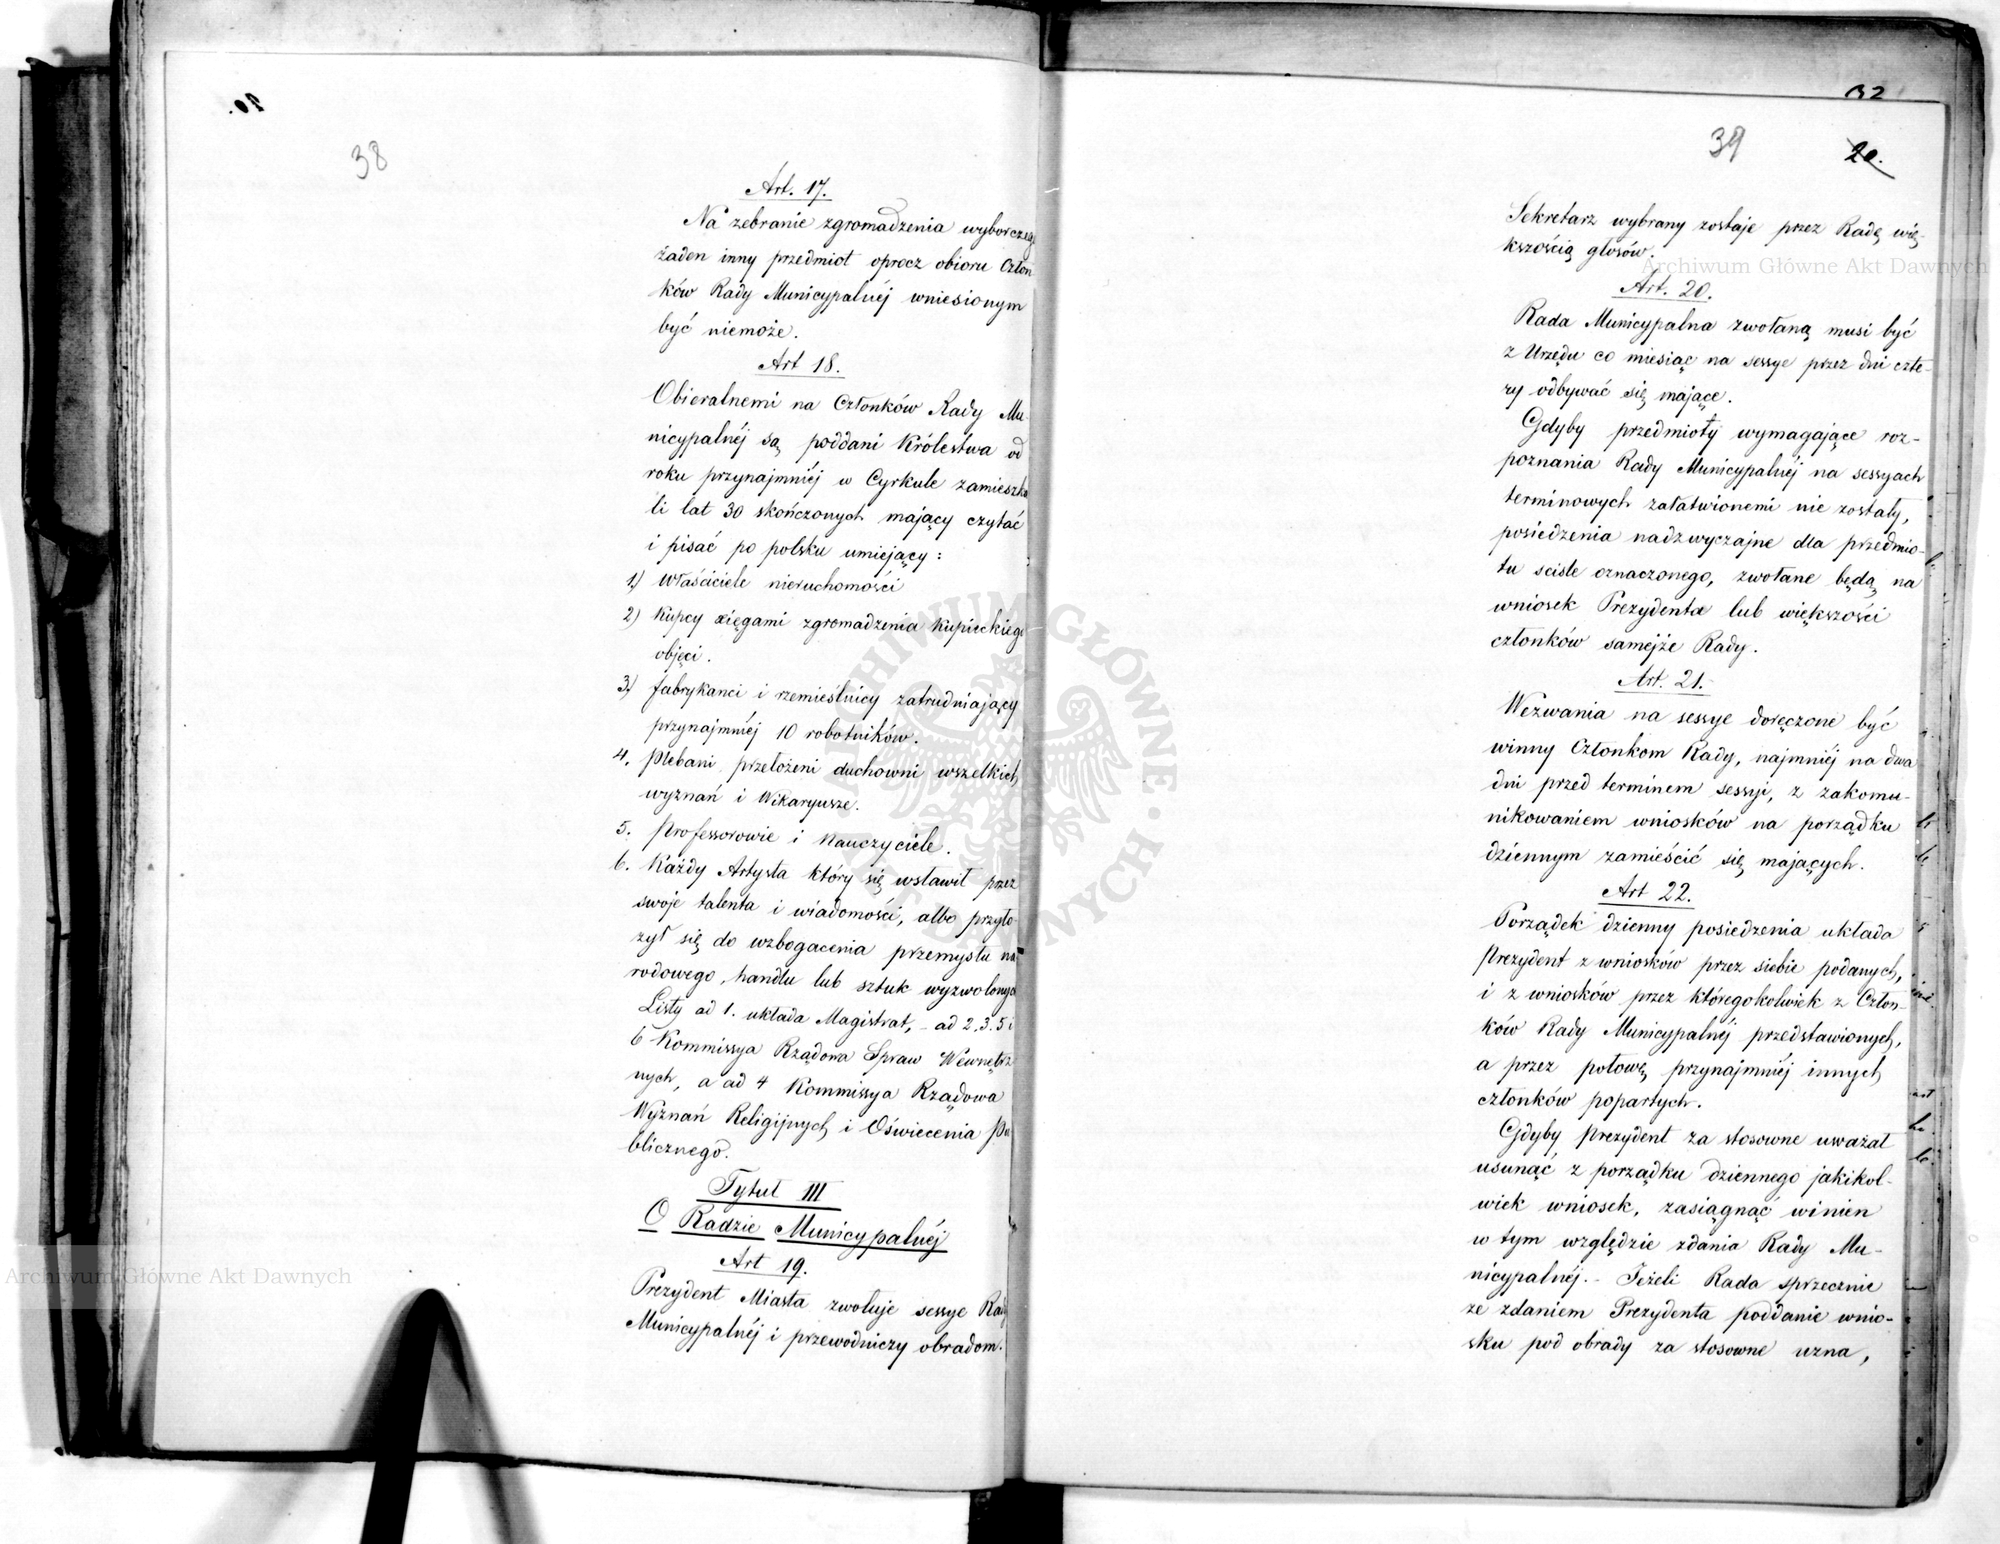 38
Art. 17.
Na zebranie zgromadzenia wyborczeg
żaden inny przedmiot oprócz obioru Człon
ków Rady Municypalnéj wniesionym
być niemoże.
Art 18.
Obieralnemi na Członków Rady Mu
nicypalnéj są poddani Królestwa od
roku przynajmniéj w Cyrkule zamieszka
li lat 30 skończonych mający czytać
i pisać po polsku umiejący:
1) Właściciele nieruchomości
2) Kupcy xięgami zgromadzenia Kupieckiego
objęci.
3) fabrykanci i rzemieślnicy zatrudniający
przynajmniéj 10 robotników.
4. Plebani przełożeni duchowni wszelkich
wyznań i Wikaryusze.
5. Professorowie i Nauczyciele.
6. Każdy Artysta który się wsławił przez
swoje talenta i wiadomości, albo przyło-
żył się do wzbogacenia przemysłu na
rodowego, handlu lub sztuk wyzwolonych
Listy ad 1. układa Magistrat, - ad 2.3.5 i
6 Kommissya Rządowa Spraw Wewnętrz
nych, a ad 4 Kommissya Rządowa
Wyznań Religijnych i Oświecenia Pu
blicznego.
Tytuł III
O Radzie Municypalnéj
Art 19.
Prezydent Miasta zwołuje sessye Rady
Municypalnéj i przewodniczy obradom.
32
39 20.
Sekretarz wybrany zostaje przez Radę wię-
kszością głosów.
Art. 20.
Rada Municypalna zwołaną musi być
z Urzędu co miesiąc na sessye przez dni czte-
ry odbywać się mające.
Gdyby przedmioty wymagające roz-
poznania Rady Municypalnéj na sessyach
terminowych załatwionemi nie zostały,
posiedzenia nadzwyczajne dla przedmio-
tu sciśle oznaczonego, zwołane będą na
wniosek Prezydenta lub większości
członków samejże Rady.
Art. 21.
Wezwania na sessye doręczone być
winny Członkom Rady, najmniéj na dwa
dni przed terminem sessyi, z zakomu-
nikowaniem wniosków na porządku
dziennym zamieścić się mających.
Art 22.
Porządek dzienny posiedzenia układa
Prezydent z wniosków przez siebie podanych,
i z wniosków przez któregokolwiek z Człon-
ków Rady Municypalnéj przedstawionych,
a przez połowę przynajmniéj innych
członków popartych.
Gdyby Prezydent za stosowne uważał
usunąć z porządku dziennego jakikol-
wiek wniosek, zasiągnąć winien
w tym względzie zdania Rady Mu-
nicypalnéj. - Jeżeli Rada sprzecznie
ze zdaniem Prezydenta poddanie wnio-
sku pod obrady za stosowne uzna,
Archiwum Główne Akt Dawnych
Archiwum Główne Akt Dawnych
ARCHIWUM GŁÓWNE AKT DAWNYCH